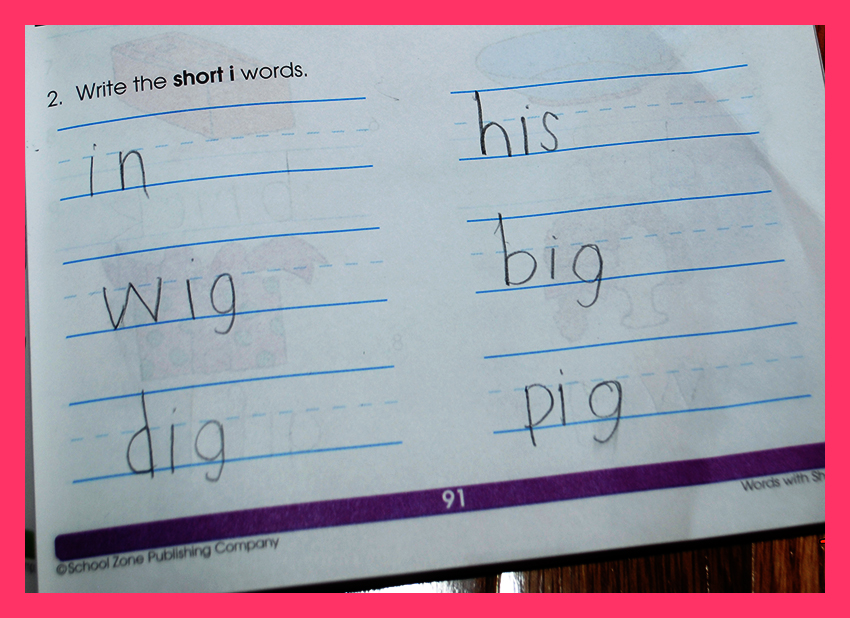 2. Write the short i words.
in
his
wig
big
dig
pig
91
Words with Sh
©School Zone Publishing Company